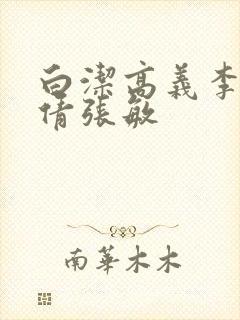 白潔高義李
倩張敏
南華木木